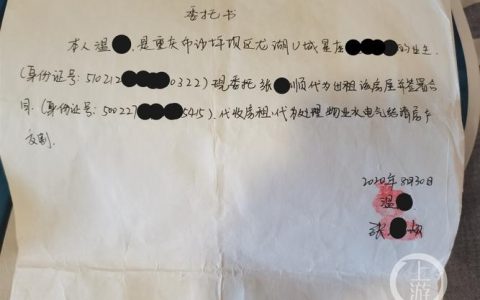 委托书
本人温 是重庆市沙坪坝区龙湖U城星座 的业主
(身份证号:510212 0322)现委托张 顺代为出租该房屋并签署合
同.(身份证号:500227 5415).代收房租.代为处理物业水电气结清房卡
交割.
2020年8月30日
温
张
上游